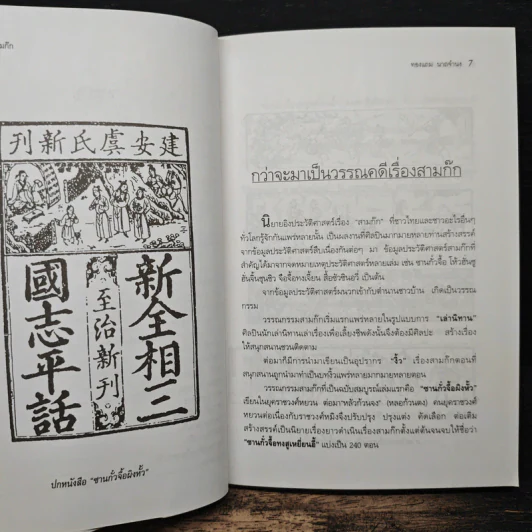 สามก๊ก
建安虞氏新刊
新全相三
至治新刊。
國志平話
ปกหนังสือ "ซานกั๋วจื้อผิงฮั้ว"
ทองแถม นาถจำนง 7
กว่าจะมาเป็นวรรณคดีเรื่องสามก๊ก
นิยายอิงประวัติศาสตร์เรื่อง "สามก๊ก" ที่ชาวไทยและชาวอะไรอื่นๆ
ทั่วโลกรู้จักกันแพร่หลายนั้น เป็นผลงานที่ศิลปินมากมายหลายท่านสร้างสรรค์
จากข้อมูลประวัติศาสตร์สืบเนื่องกันต่อๆ มา ข้อมูลประวัติศาสตร์สามก๊กที่
สำคัญได้มาจากจดหมายเหตุประวัติศาสตร์หลายเล่ม เช่น ซานกั๋วจื้อ โห้วฮั่นซู
ฮั่นจิ้นชุนชิว จือจื้อทงเจี้ยน สื่อซัวซินอวี่ เป็นต้น
จากข้อมูลประวัติศาสตร์ผนวกเข้ากับตำนานชาวบ้าน เกิดเป็นวรรณ
กรรม
วรรณกรรมสามก๊กเริ่มแรกแพร่หลายในรูปแบบการ "เล่านิทาน"
ศิลปินนักเล่านิทานเล่าเรื่องเพื่อเลี้ยงชีพดังนั้นจึงต้องมีศิลปะ สร้างเรื่อง
ให้สนุกสนานชวนติดตาม
ต่อมาก็มีการนำมาเขียนเป็นอุปรากร "งิ้ว" เรื่องสามก๊กตอนที่
สนุกสนานถูกนำมาทำเป็นบทงิ้วแพร่หลายมากมายหลายตอน
วรรณกรรมสามก๊กที่เป็นฉบับสมบูรณ์เล่มแรกคือ "ซานกั๋วจื้อผิงฮั้ว"
เขียนในยุคราชวงศ์หยวน ต่อมา"หลัวก้วนจง" (หลอก้วนตง) คนยุคราชวงศ์
หยวนต่อเนื่องกับราชวงศ์หมิงจึงปรับปรุง ปรุงแต่ง ตัดเลือก ต่อเติม
สร้างสรรค์เป็นนิยายเรื่องยาวดำเนินเรื่องสามก๊กตั้งแต่ต้นจนจบให้ชื่อว่า
"ซานกั๋วจื้อทงสูเหยี่ยนอี้" แบ่งเป็น 240 ตอน